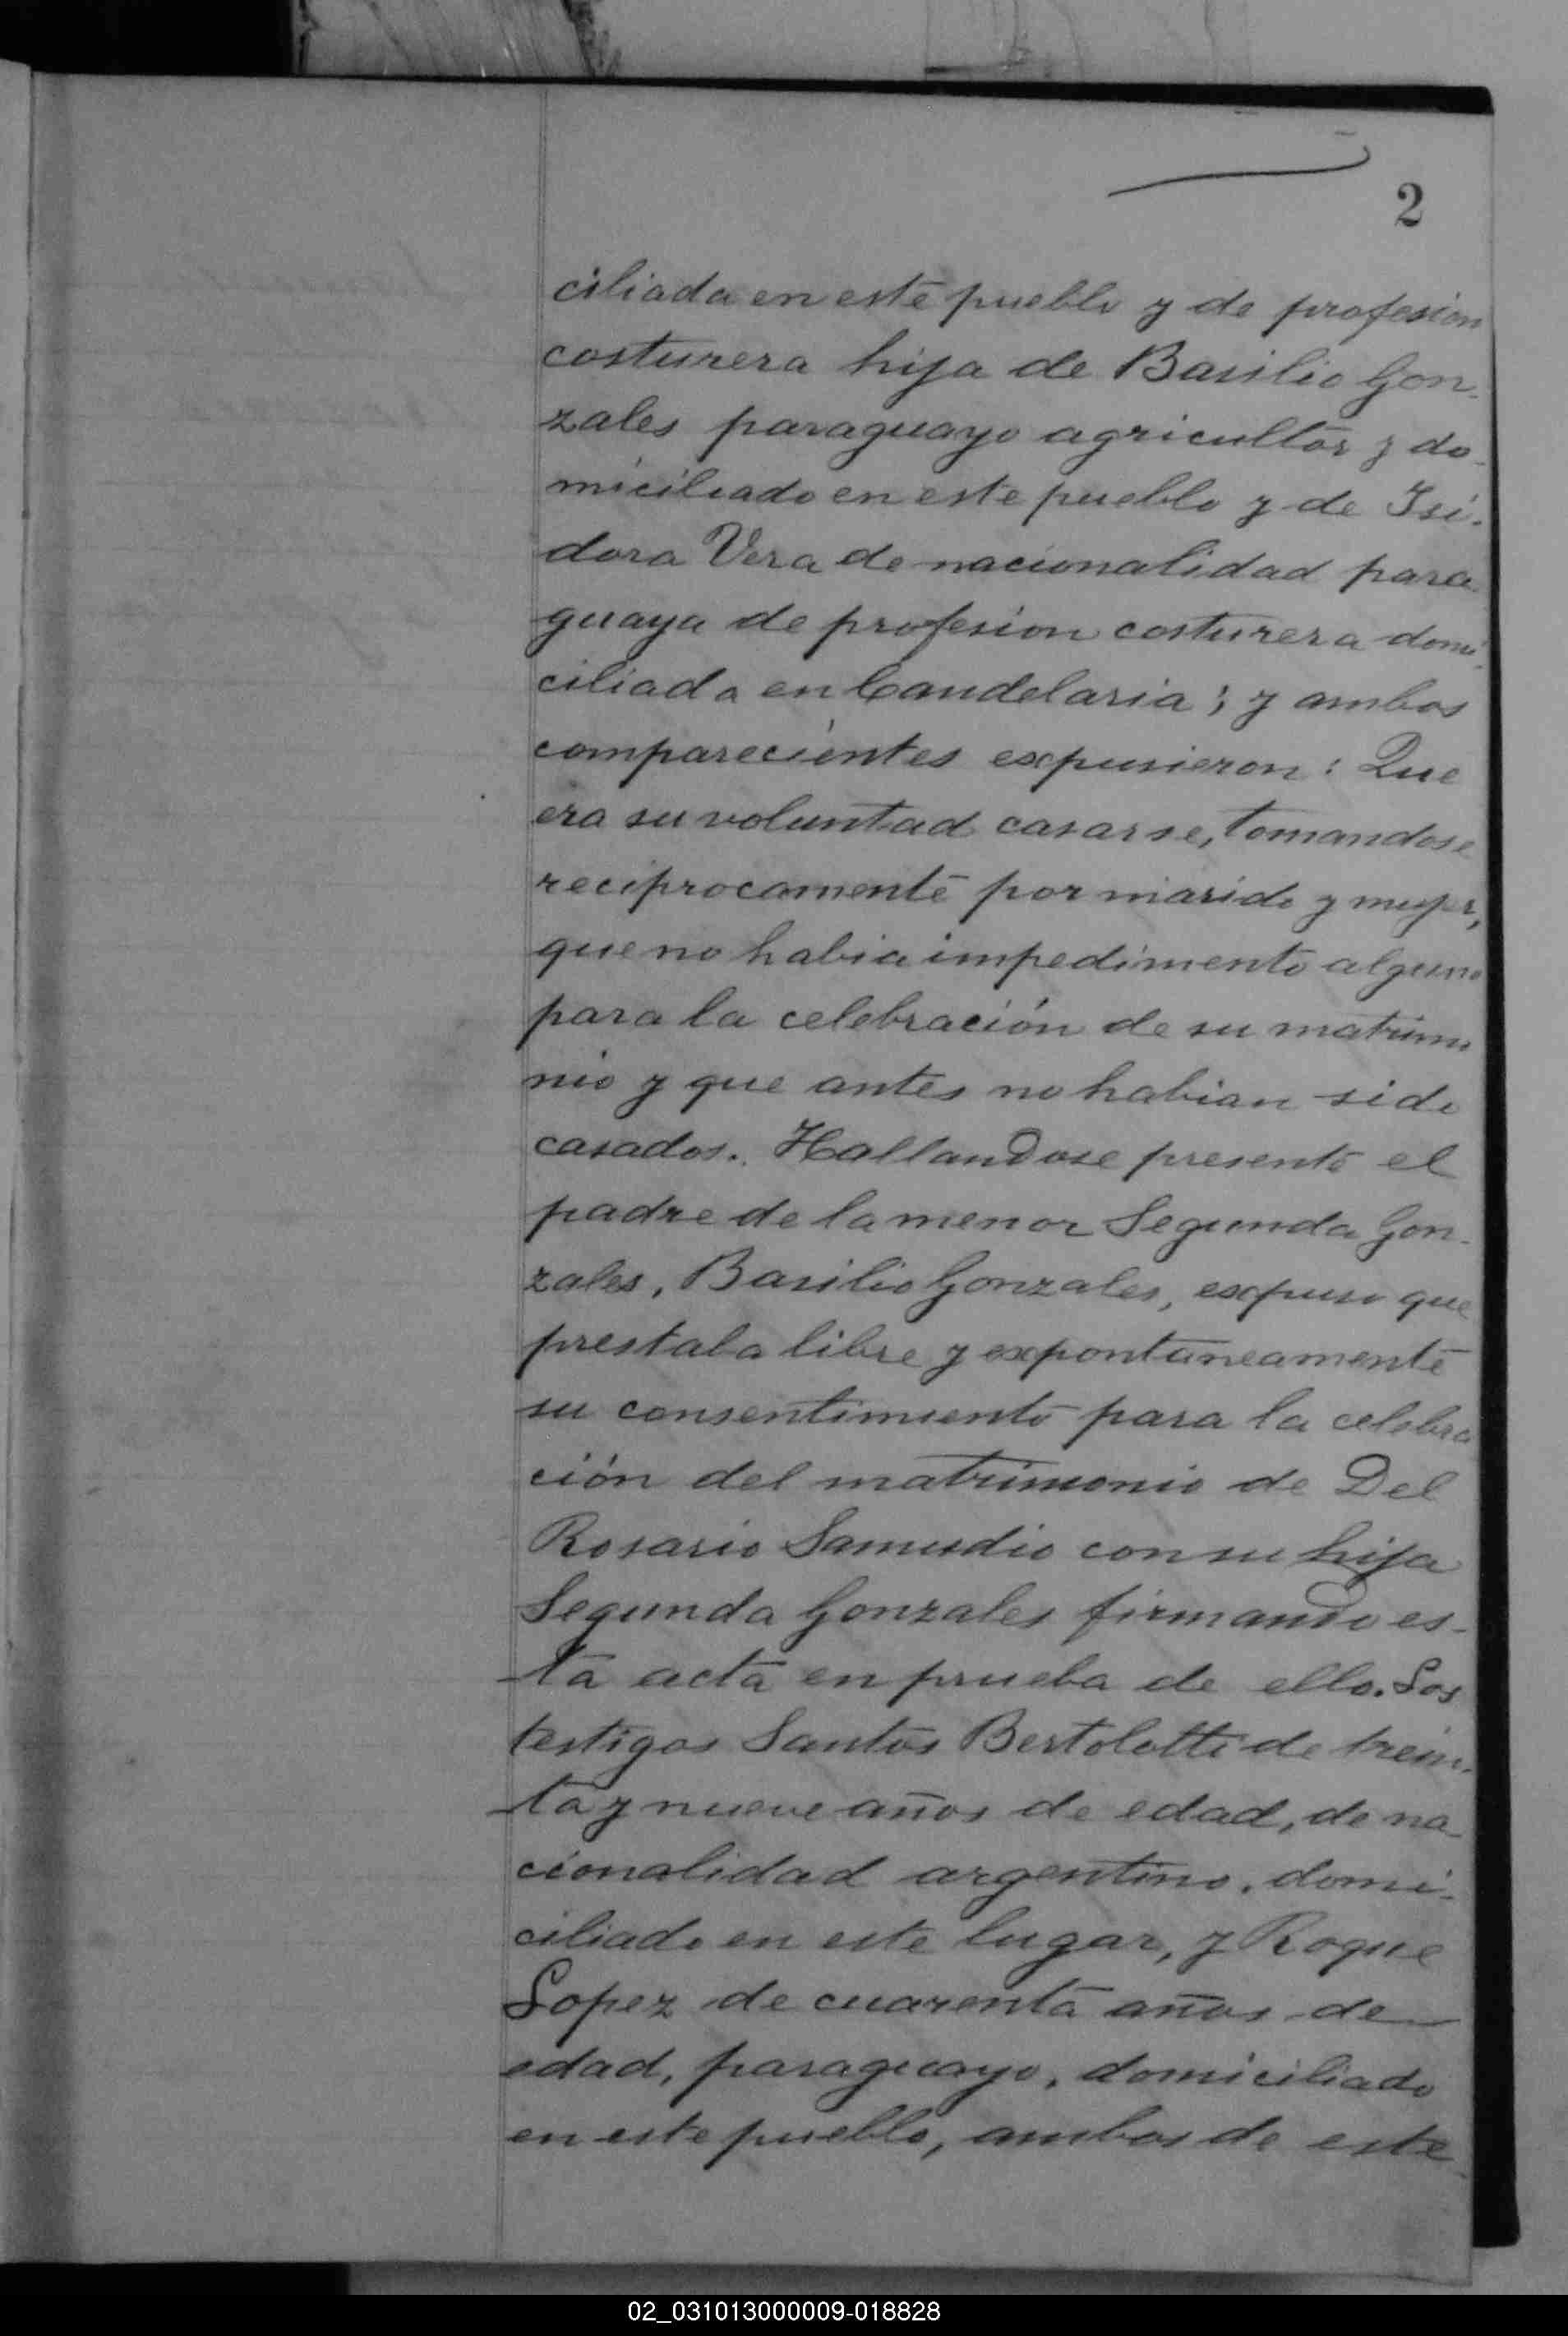 2
ciliada en este pueblo y de profesion
costurera hija de Basilio Gon-
zales paraguayo agricultor y do-
miciliado en este pueblo y de Isi-
dora Vera de nacionalidad para-
guaya de profesion costurera domi-
ciliada en Candelaria; y ambos
comparecientes expusieron: Que
era su voluntad casarse, tomandose
reciprocamente por marido y mujer,
que no habia impedimento alguno
para la celebración de su matrimo
nio y que antes no habian sido
casados. Hallandose presente el
padre de la menor Segunda Gon-
zales, Basilio Gonzales, expuso que
prestaba libre y expontaneamente
su consentimiento para la celebra
ción del matrimonio de Del
Rosario Samudio con su hija
Segunda Gonzales firmando es-
ta acta en prueba de ello. Los
testigos Santos Bertolotti de trein-
ta y nueve años de edad, de na-
cionalidad argentino, domi-
ciliado en este lugar, y Roque
Lopez de cuarenta años de
edad, paraguayo, domiciliado
en este pueblo, ambos de este
02_031013000009-018828